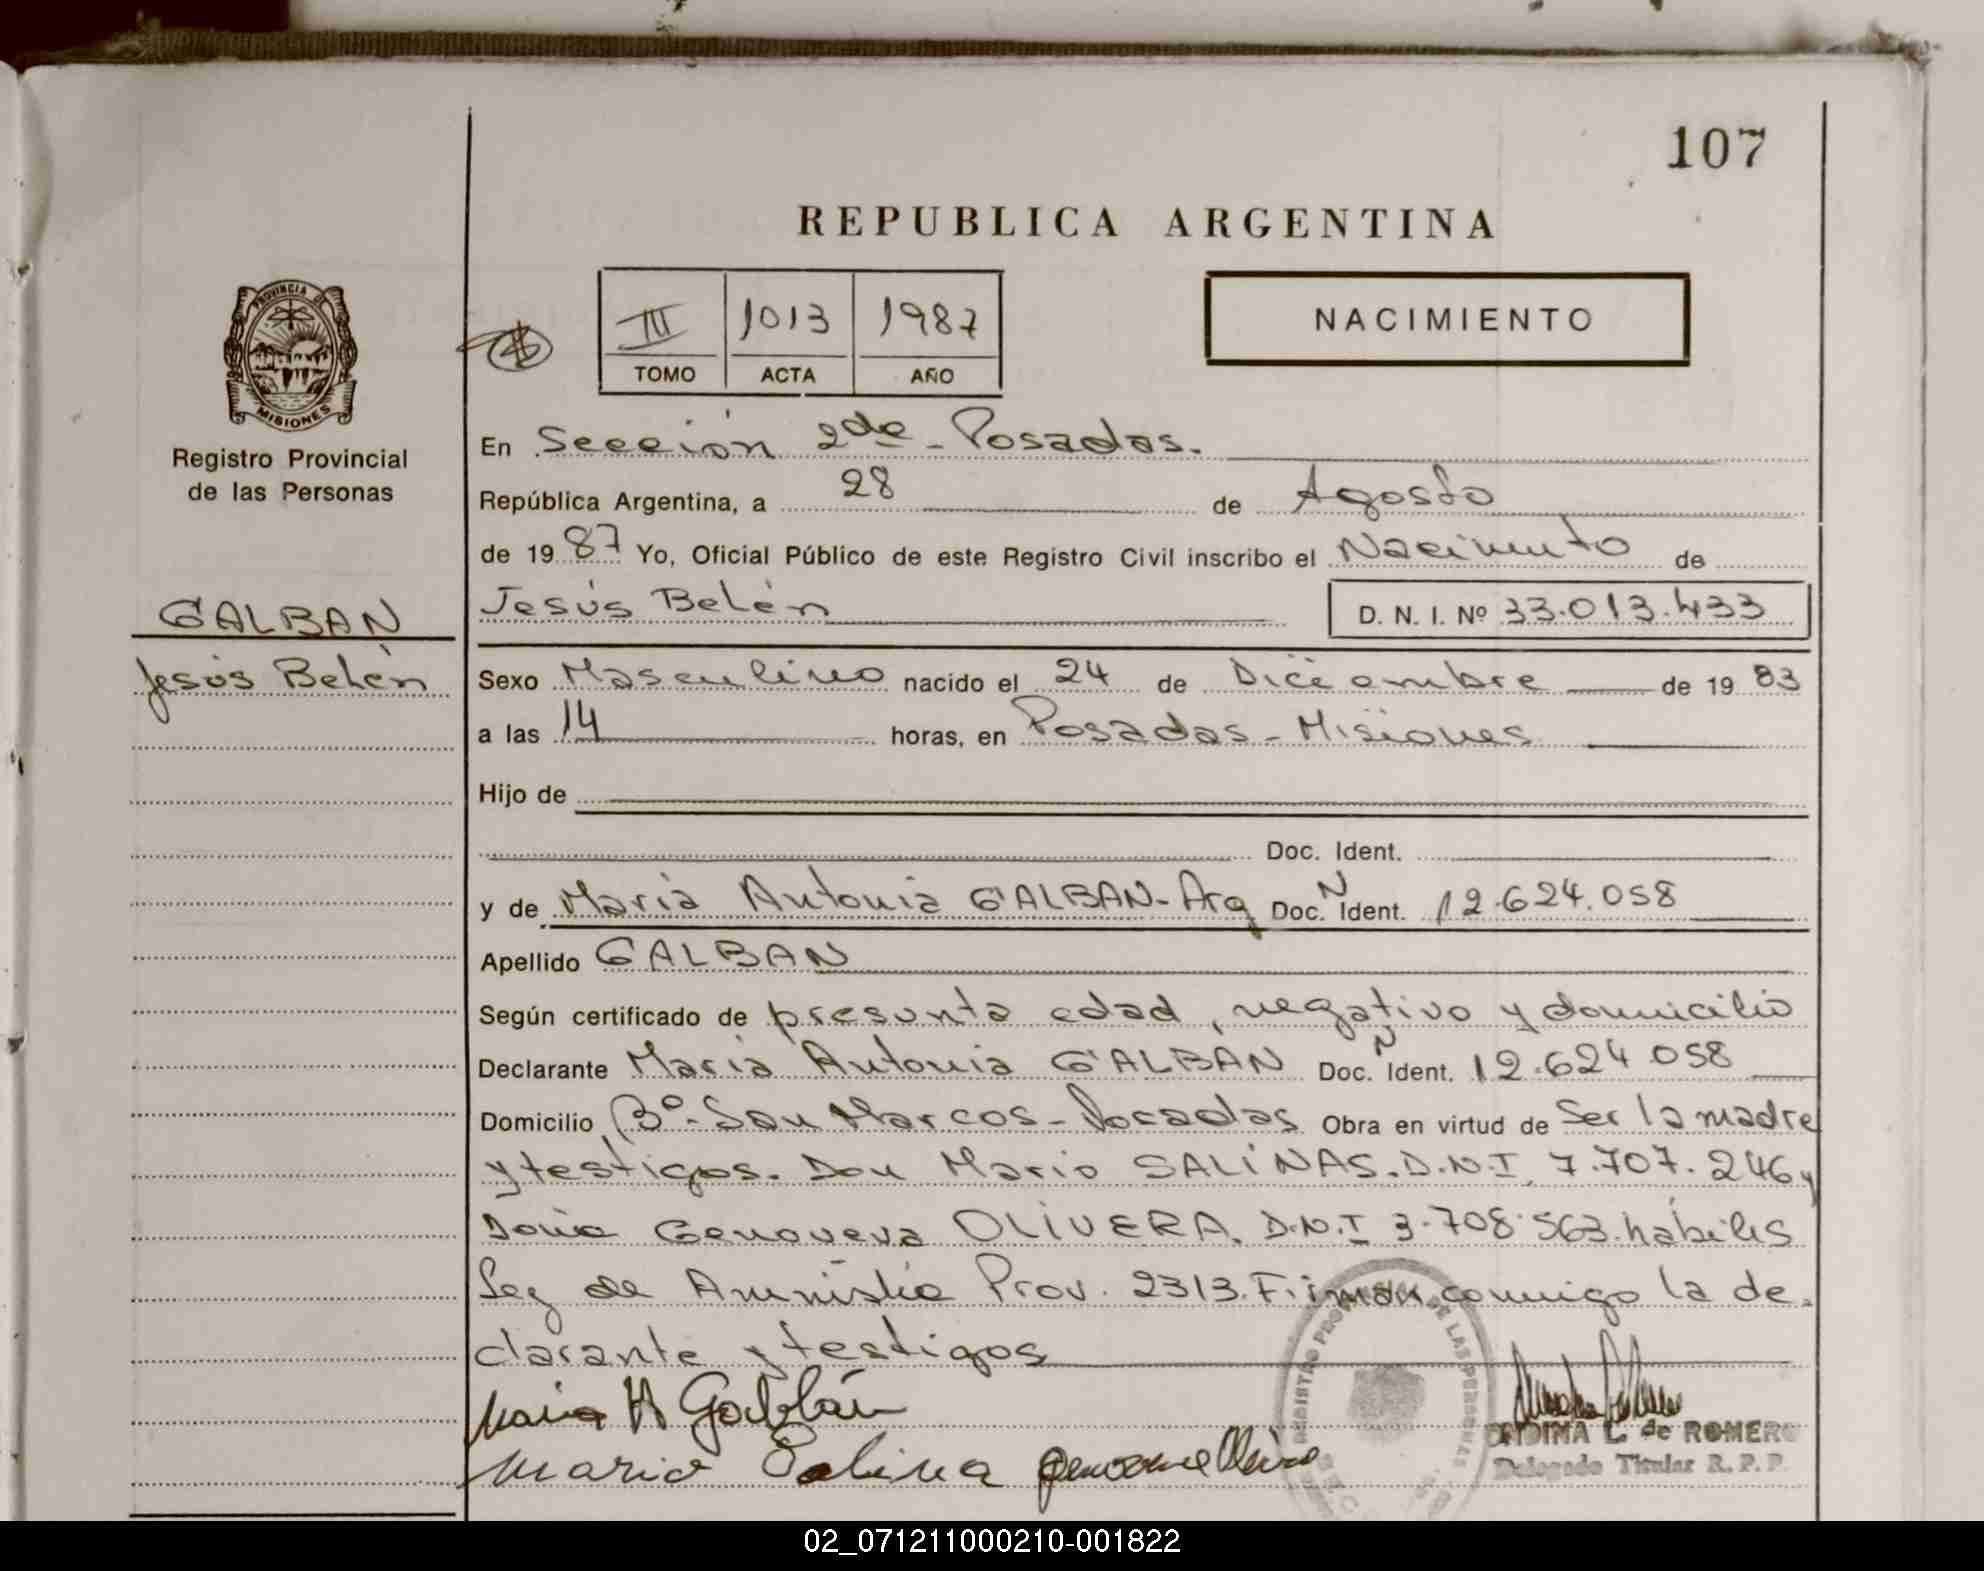 107
REPUBLICA ARGENTINA
III 1013 1987
TOMO ACTA AÑO
NACIMIENTO
PROVINCIA DE
MISIONES
Registro Provincial
de las Personas
GALBAN
Jesús Belén
En Sección 2da - Posadas.
República Argentina, a 28 de Agosto
de 1987 Yo, Oficial Público de este Registro Civil inscribo el Nacimiento de
Jesús Belén D. N. I. Nº 33.013.433
Sexo Masculino nacido el 24 de Diciembre de 1983
a las 14 horas, en Posadas - Misiones
Hijo de
Doc. Ident.
y de María Antonia GALBAN - Arg Doc. N Ident. 12.624.058
Apellido GALBAN
Según certificado de presunta edad, negativo y domicilio
Declarante María Antonia GALBAN Doc. N Ident. 12.624.058
Domicilio Bº. San Marcos - Posadas Obra en virtud de Ser la madre
y testigos. Don Mario SALINAS. D.N.I. 7.707.246 y
Doña Genoveva OLIVERA. D.N.I 3.708.563. hábiles
Ley de Amnistía Prov. 2313. Firman conmigo la de-
clarante y testigos
Maria A Galbán
Mario Salina
REGISTRO PROVINCIAL DE LAS PERSONAS
ONDINA L. de ROMERO
Delegado Titular R. P. P.
02_071211000210-001822